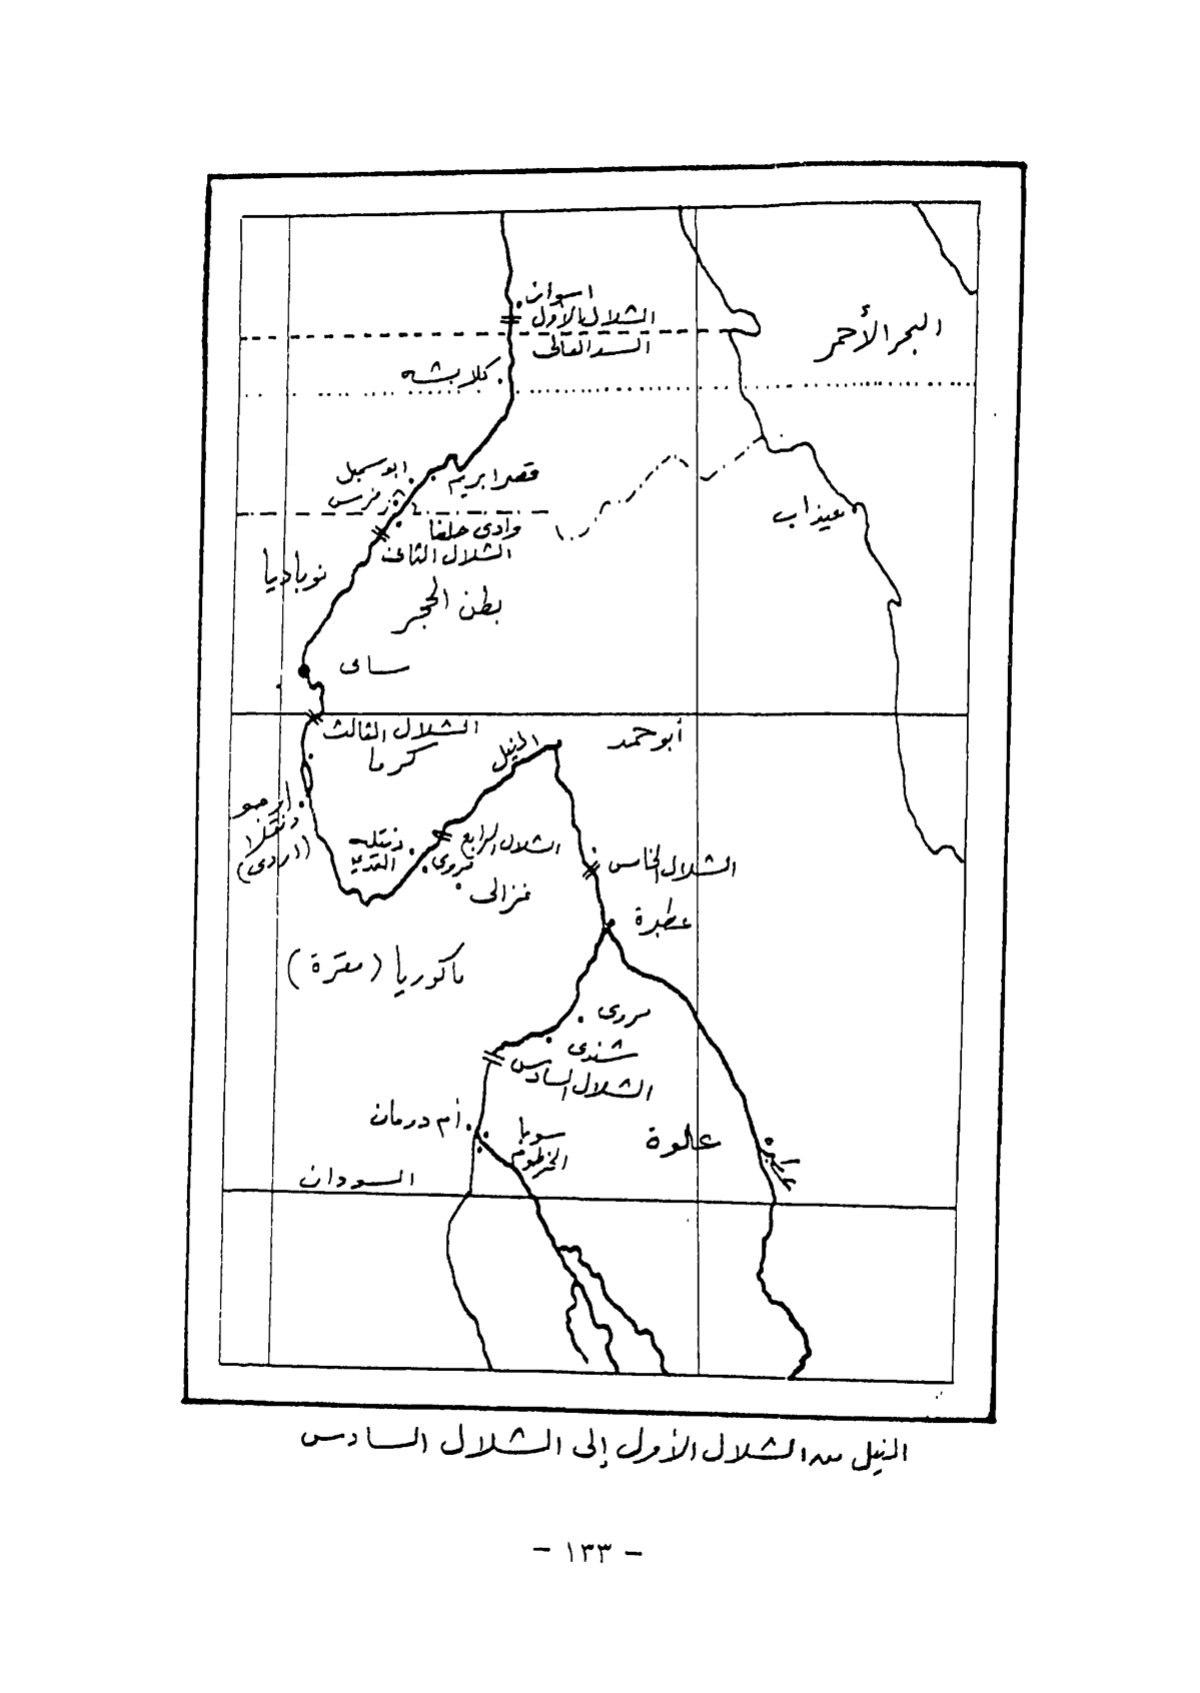 اسوان
الشلال الأول
السد العالى
البحر الأحمر
كلابشه
ابو سمبل
قصر ابريم
فرس
وادى حلفا
عيذاب
الشلال الثانى
نوباديا
بطن الحجر
ساى
الشلال الثالث
أبو حمد
كرما
النيل
ارجو
دنقلا
(اردى)
دنقله
القديمه
الشلال الرابع
مروى
غزالى
الشلال الخامس
عطبرة
ماكوريا (مقرة)
مروى
شندى
الشلال السادس
أم درمان
سوبا
الخرطوم
علوة
السودان
النيل من الشلال الأول إلى الشلال السادس
- ١٣٣ -